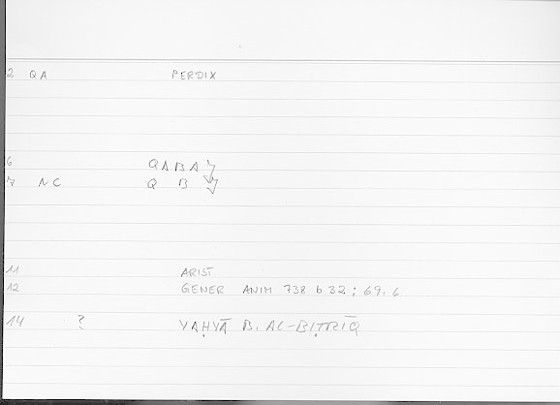 2 QA PERDIX
6 QABAǦ
7 NC Q B Ǧ
11 ARIST
12 GENER ANIM 738 b 32; 69, 6
14 ? YAḤYĀ B. AL-BIṬRĪQ